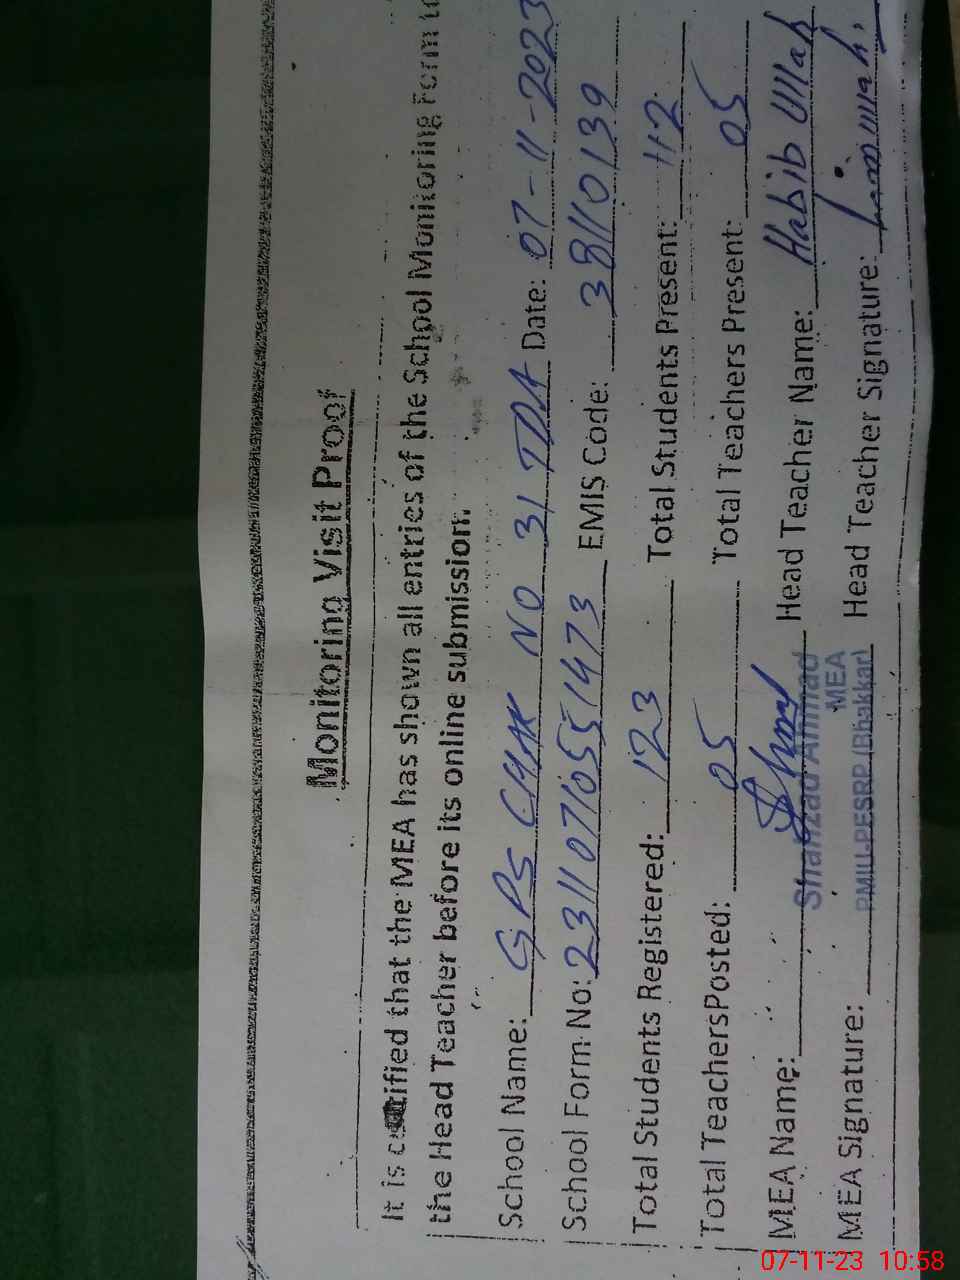 Monitoring Visit Proof
It is certified that the MEA has shown all entries of the School Monitoring Form to
the Head Teacher before its online submission.
School Name: GPS CHAK NO 31 TDA Date: 07-11-2023
School Form No: 23110710551473 EMIS Code: 38110139
Total Students Registered: 123 Total Students Present: 112
Total TeachersPosted: 05 Total Teachers Present: 05
MEA Name: Shahzad Ahmad Head Teacher Name: Habib Ullah
MEA
MEA Signature: PMIU-PESRP (Bhakkar) Head Teacher Signature:
07-11-23 10:58